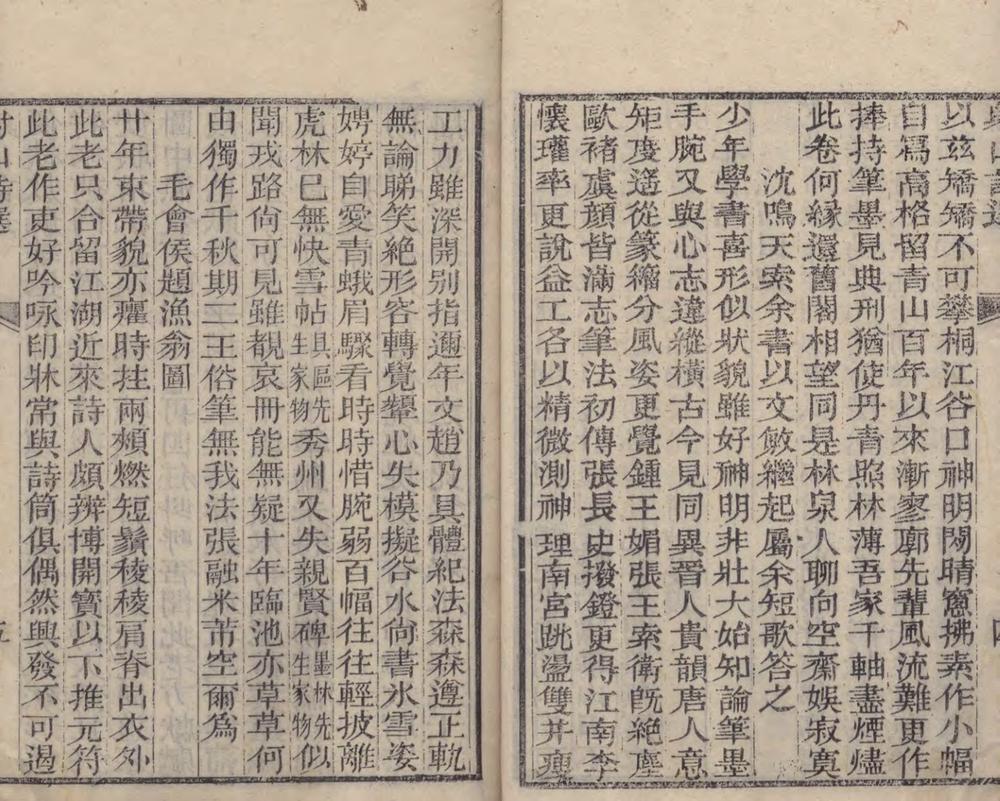 以玆矯矯不可攀桐江谷口神明閟晴窻拂素作小幅
自寫高格留青山百年以來漸寥廓先輩風流難更作
捧持筆墨見典刑猶使丹青照林薄吾家千軸盡煙燼
此卷何緣還舊閣相望同是林泉人聊向空齋娛寂寞
沈鳴天索余書以文敏繼起屬余短歌答之
少年學書喜形似狀貌雖好神明非壯大始知論筆墨
手腕又與心志違縱橫古今見同異晉人貴韻唐人意
矩度遥從篆籀分風姿更覺鍾王媚張王索衛旣絕塵
歐褚虞顔皆滿志筆法初傳張長史撥鐙更得江南李
懷瓘率更說益工各以精微測神理南宮跳盪雙井瘦
工力雖深開别指邇年文趙乃具體紀法森森遵正軌
無論睇笑絕形容轉覺顰心失模擬谷水尙書氷雪姿
娉婷自愛青蛾眉驟看時時惜腕弱百幅往往輕披離
虎林巳無快雪帖具區先生家物秀州又失親賢碑墨林先生家物似
聞戎路尙可見雖覩哀冊能無疑十年臨池亦草草何
由獨作千秋期二王俗筆無我法張融米芾空爾為
毛會侯題漁翁圖
廿年束帶貌亦癯時拄兩頰燃短鬚稜稜肩脊出衣外
此老只合留江湖近來詩人頗辨博開寶以下推元符
此老作更好吟咏印牀常與詩筒俱偶然興發不可過
五